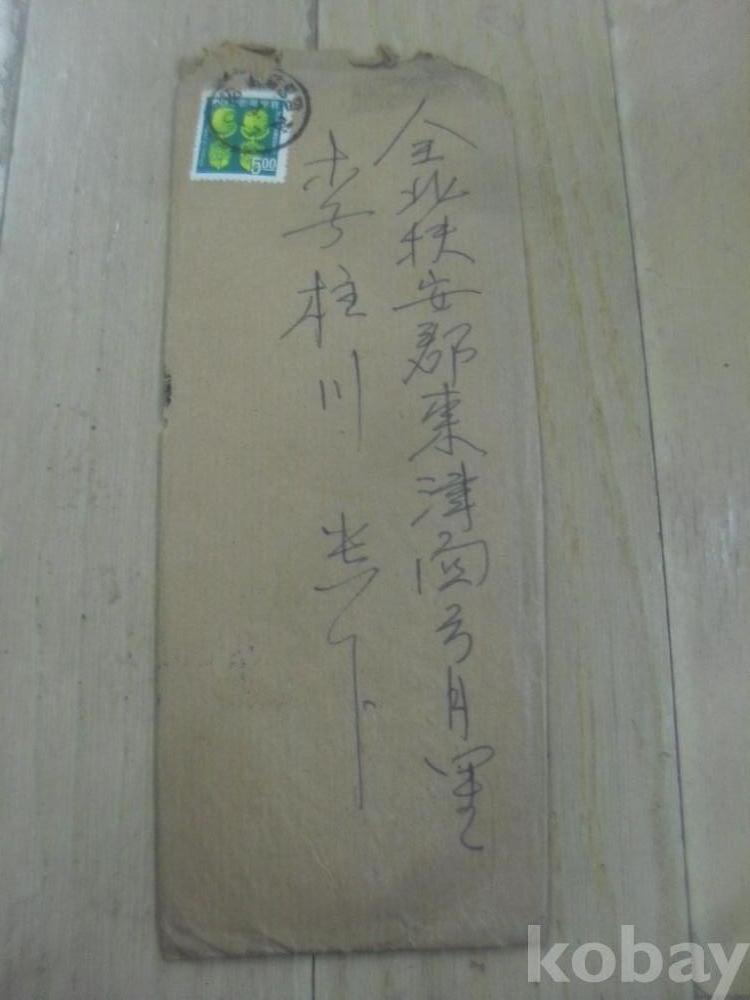 全北扶安郡東津面弓月里
李柱川 貴下
5.00
kobay